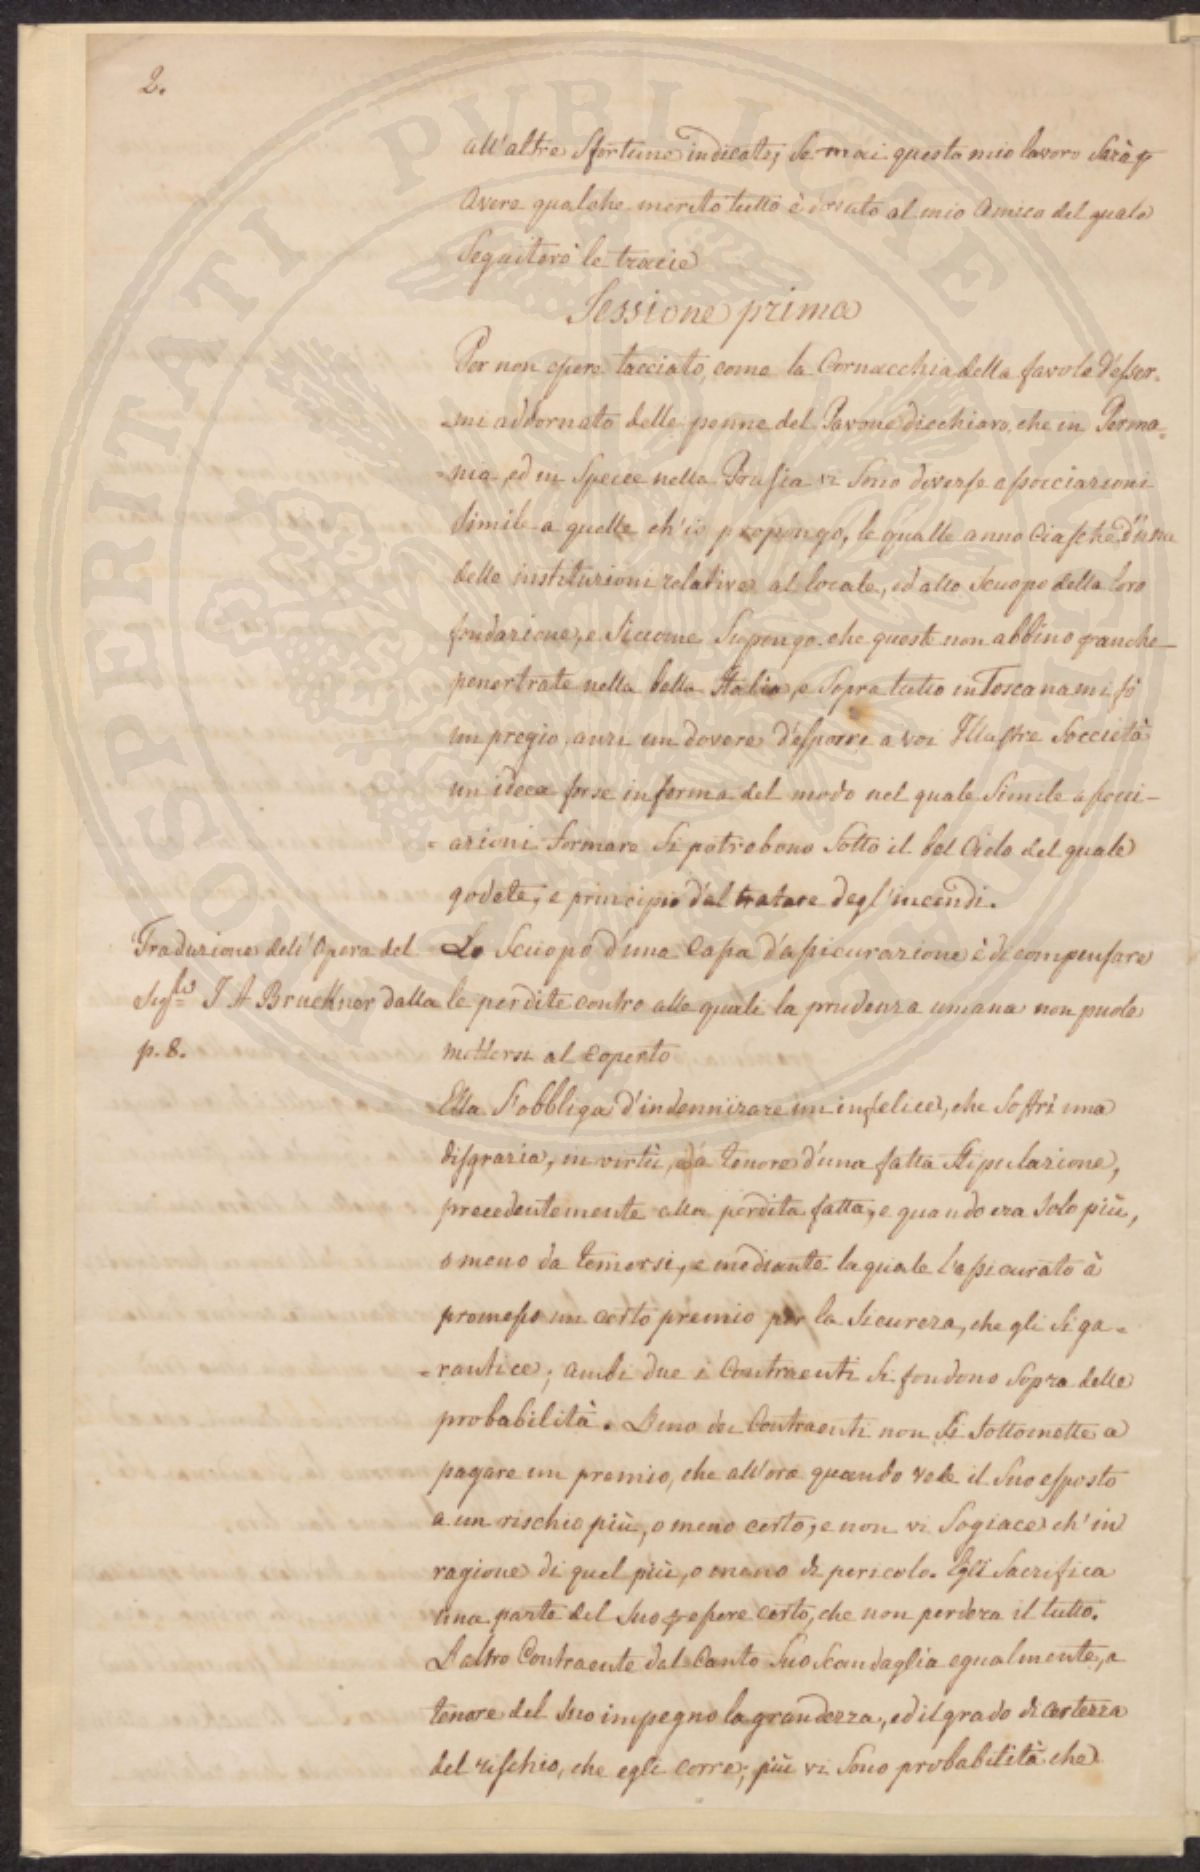 2.
all'altre Sfortune indicate; Se mai questo mio lavoro Sarà p
Avere qualche merito tutto è dovuto al mio Amico del quale
Seguiterò le tracie
Sessione prima
Per non essere tacciato, come la Cornacchia della favola d'esser-
-mi addornato delle penne del Pavone dicchiaro, che in Germa=
=nia, ed in Specce nella Prussia vi Sono diverse associazioni
Simile a quelle ch'io propongo, le qualle anno Ciasched'una
delle instituzioni relative al locale, ed allo Scuopo della loro
fondazione, e Siccome Supongo che queste non abbino granche
penertrate nella bella Italia, e Sopra tutto in Toscana mi fò
un pregio, anzi un dovere d'esporre a voi Illustre Soccietà
un ideea forse informa del modo nel quale Simile associ-
-azioni formare Si potrebono Sotto il bel Cielo del quale
godete; e principio d'al tratare degl'incendi.
Traduzione dell'Opera del
Sigre J A Bruckner dalla
p. 8.
Lo Scuopo d'una Cassa d'assicurazione è di compensare
le perdite contro alle quali la prudenza umana non puole
mettersi al Coperto
Ella S'obbliga d'indennizare un infelice, che Soffri una
disgrazia, in virtù, d'a tenore d'una fatta Stipulazione,
precedentemente alla perdita fatta, e quando era Solo più,
o meno da temersi, e mediante la quale l'assicurato à
promesso un certo premio per la Sicureza, che gli Si ga-
-rantice; ambi due i Contraenti Si fondono Sopra delle
probabilità. L'uno dei Contraenti non Si Sottomette a
pagare un premio, che all'ora quando vede il Suo esposto
a un rischio più, o meno certo, e non vi Sogiace ch'in
ragione di quel più, o meno di pericolo. Egli Sacrifica
una parte del Suo p essere certo, che non perdera il tutto.
L'altro Contraente dal Canto Suo Scandaglia egualmente, a
tenore del Suo impegno la grandezza, ed il grado di certezza
del rischio, che egli corre; più vi Sono probabilità che
PROSPERITATI PUBLICAE AUGENDAE